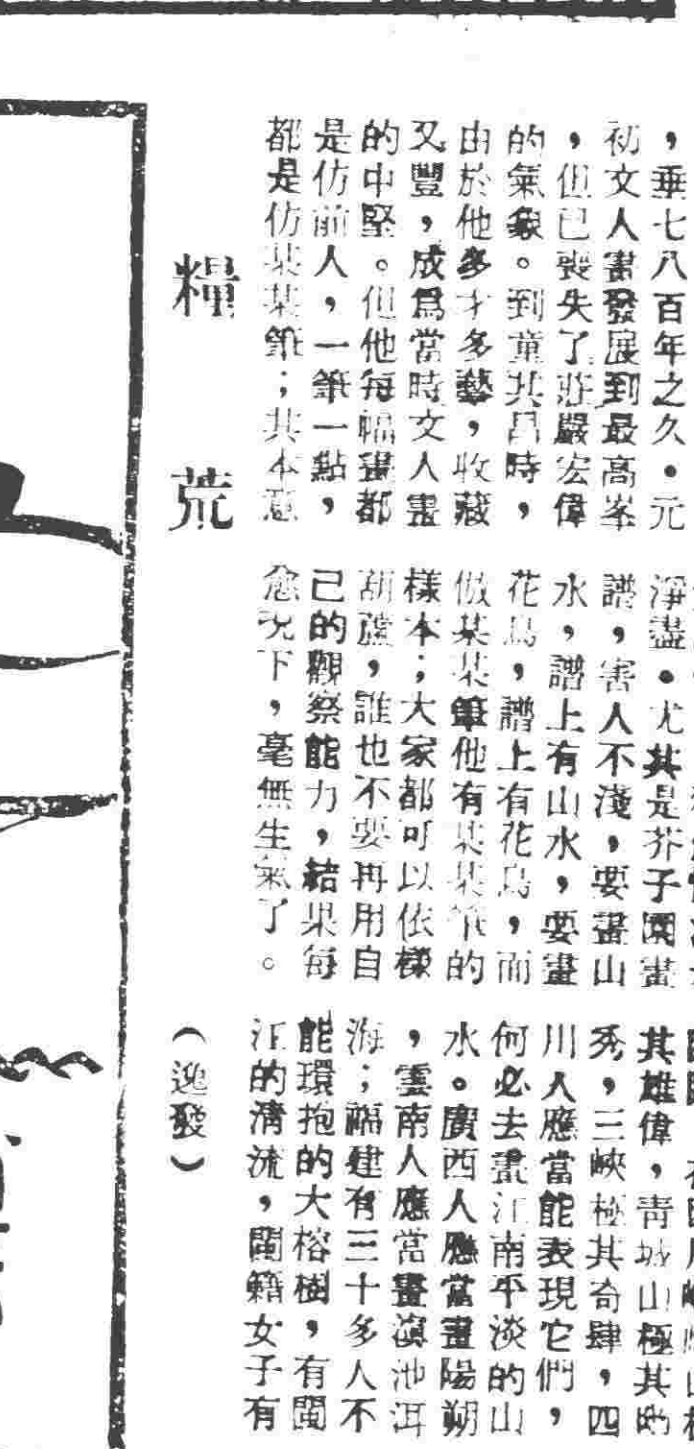 ，垂七八百年之久。元
初文人畫發展到最高峯
，但已喪失了莊嚴宏偉
的氣象。到董其昌時，
由於他多才多藝，收藏
又豐，成爲當時文人畫
的中堅。但他每幅畫都
是仿前人，一筆一點，
都是仿某某筆；其本意
淨盡。尤其是芥子園畫
譜，害人不淺，要畫山
水，譜上有山水，要畫
花鳥，譜上有花鳥，而
倣某某筆他有某某筆的
樣本；大家都可以依樣
葫蘆，誰也不要再用自
己的觀察能力，結果每
愈况下，毫無生氣了。
其雄偉，青城山極其幽
秀，三峽極其奇肆，四
川人應當能表現它們，
何必去畫江南平淡的山
水。廣西人應當畫陽朔
，雲南人應當畫滇池洱
海；福建有三十多人不
能環抱的大榕樹，有閩
江的清流，閩籍女子有
（逸發）
糧荒